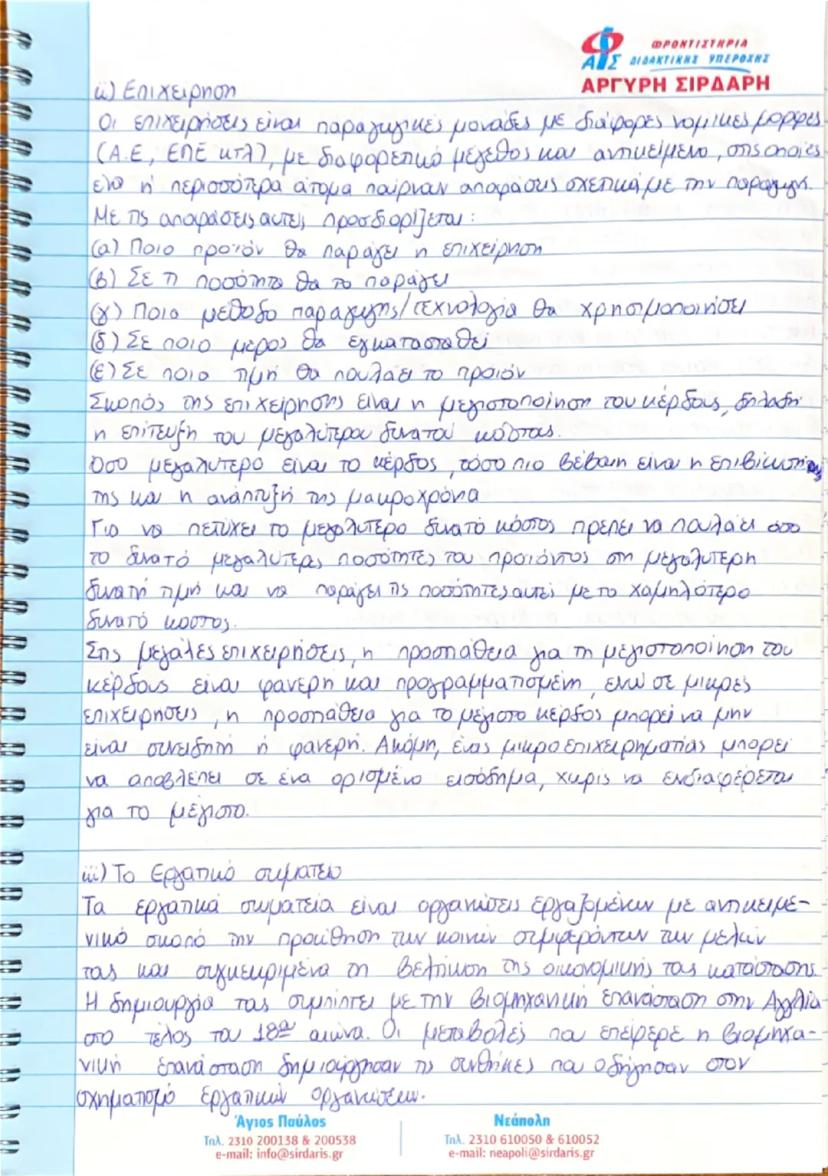 ΦΡΟΝΤΙΣΤΗΡΙΑ
ΑΦΣ ΔΙΔΑΚΤΙΚΗΣ ΥΠΕΡΟΧΗΣ
ΑΡΓΥΡΗ ΣΙΡΔΑΡΗ
ii) Επιχείρηση
Οι επιχειρήσεις είναι παραγωγικές μονάδες με διάφορες νομικές μορφές
(Α.Ε, ΕΠΕ κτλ), με διαφορετικό μέγεθος και αντικείμενο, στις οποίες
ένα ή περισσότερα άτομα παίρνουν αποφάσεις σχετικά με την παραγωγή.
Με τις αποφάσεις αυτές προσδιορίζεται:
(α) Ποιο προϊόν θα παράγει η επιχείρηση
(β) Σε τι ποσότητα θα το παράγει
(γ) Ποια μέθοδο παραγωγής/τεχνολογία θα χρησιμοποιήσει
(δ) Σε ποιο μέρος θα εγκατασταθεί
(ε) Σε ποια τιμή θα πουλάει το προϊόν
Σκοπός της επιχείρησης είναι η μεγιστοποίηση του κέρδους, δηλαδή
η επίτευξη του μεγαλύτερου δυνατού κόστους.
Όσο μεγαλύτερο είναι το κέρδος, τόσο πιο βέβαιη είναι η επιβίωση
της και η ανάπτυξή της μακροχρόνια
Για να πετύχει το μεγαλύτερο δυνατό κόστος πρέπει να πουλάει όσο
το δυνατό μεγαλύτερες ποσότητες του προϊόντος στη μεγαλύτερη
δυνατή τιμή και να παράγει τις ποσότητες αυτές με το χαμηλότερο
δυνατό κόστος.
Στις μεγάλες επιχειρήσεις, η προσπάθεια για τη μεγιστοποίηση του
κέρδους είναι φανερή και προγραμματισμένη, ενώ σε μικρές
επιχειρήσεις, η προσπάθεια για το μέγιστο κέρδος μπορεί να μην
είναι συνειδητή ή φανερή. Ακόμη, ένας μικροεπιχειρηματίας μπορεί
να αποβλέπει σε ένα ορισμένο εισόδημα, χωρίς να ενδιαφέρεται
για το μέγιστο.
iii) Το Εργατικό σωματείο
Τα εργατικά σωματεία είναι οργανώσεις εργαζομένων με αντικειμε-
νικό σκοπό την προώθηση των κοινών συμφερόντων των μελών
τους και συγκεκριμένα τη βελτίωση της οικονομικής τους κατάστασης.
Η δημιουργία τους συμπίπτει με την βιομηχανική επανάσταση στην Αγγλία
στο τέλος του 18ου αιώνα. Οι μεταβολές που επέφερε η βιομηχα-
νική επανάσταση δημιούργησαν τις συνθήκες που οδήγησαν στον
σχηματισμό εργατικών οργανώσεων.
Άγιος Παύλος
Τηλ. 2310 200138 & 200538
e-mail: info@sirdaris.gr
Νεάπολη
Τηλ. 2310 610050 & 610052
e-mail: neapoli@sirdaris.gr